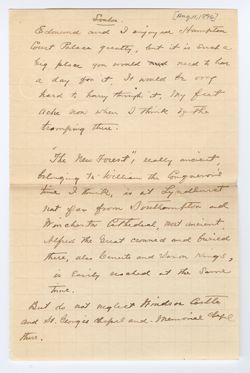 London.
[Aug. 11, 1896]
Edmund and I enjoyed Hampton
Court Palace greatly, but it is such a
big place you would need to have
a day for it. It would be very
hard to hurry through it. My feet
ache now when I think of the
tramping there.
"The New Forest", really ancient,
belonging to William the Conqueror's
time I think, is at Lyndhurst
not far from Southampton and
Winchester Cathedral, most ancient.
Alfred the Great crowned and buried
there, also Canute and Saxon Kings,
is easily reached at the same
time.
But do not neglect Windsor Castle
and St. George's Chapel and Memorial Chapel
there.